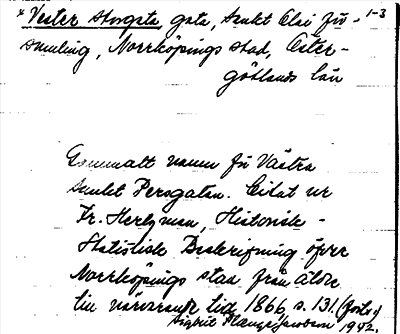 * Vester storgste gata, Sankt Olai för- 1-3
samling, Norrköpings stad, Öster-
götlands län
Gammalt namn för Västra
Sankt Persgatan. Citat ur
Fr. Hertzman, Historisk-
Statistisk Beskrifning öfver
Norrköpings stad från äldre
till närvarande tid 1866, s. 131. (forts.)
Sigrid 1942.